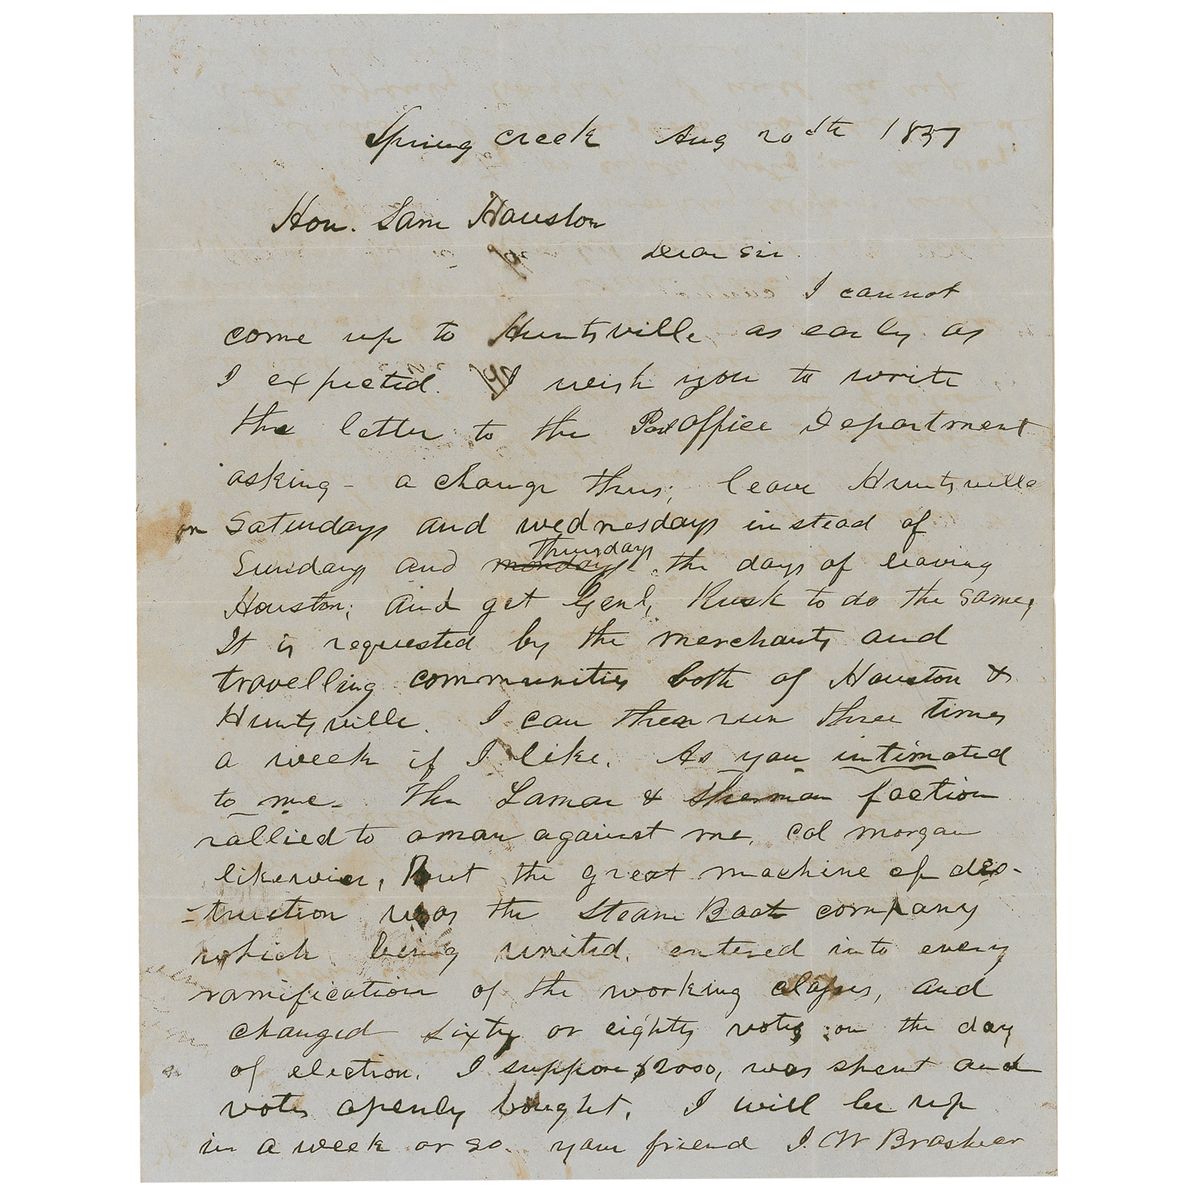 Spring Creek Aug 20th 1857
Hon. Sam Houston
Dear Sir.
I cannot
come up to Huntsville as early as
I expected. I wish you to write
the letter to the Post Office Department
asking - a change thus; leave Huntsville
on Saturdays and wednesdays instead of
Sundays and monday Thursdays. the days of leaving
Houston; and get Genl, Rusk to do the same,
It is requested by the merchants and
travelling communities both of Houston &
Huntsville. I can then run three times
a week if I like. As you intimated
to me - The Lamar & Sherman faction
rallied to a man against me, Col Morgan
likewise, But the great machine of des-
-truction was the Steam Boat company
which being united, entered into every
ramification of the working classes, and
changed sixty or eighty votes on the day
of election. I suppose $2000, was spent and
votes openly bought. I will be up
in a week or so. your friend I. W Brashear